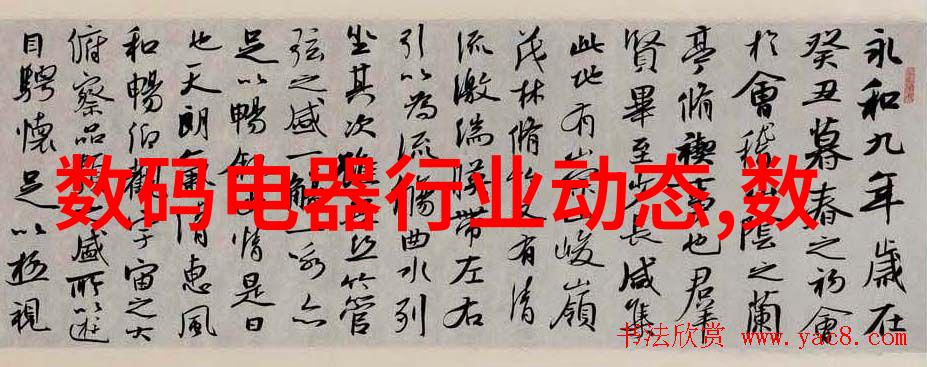 永和九年歲在
癸丑暮春之初會
於會稽陰之蘭
亭脩禊事也群
賢畢至少長咸集
此地有山峻嶺
茂林脩竹又有清
流激湍暎帶左右
引以為流觴曲水列
坐其次絲竹管
弦之盛一觴一詠亦
足以暢情是日
也天朗氣清惠風
和暢仰觀宇宙之大
俯察品類盛所以遊
目騁懷足以極視
数码电器行业动态,数
书法欣赏 www.yac8.com